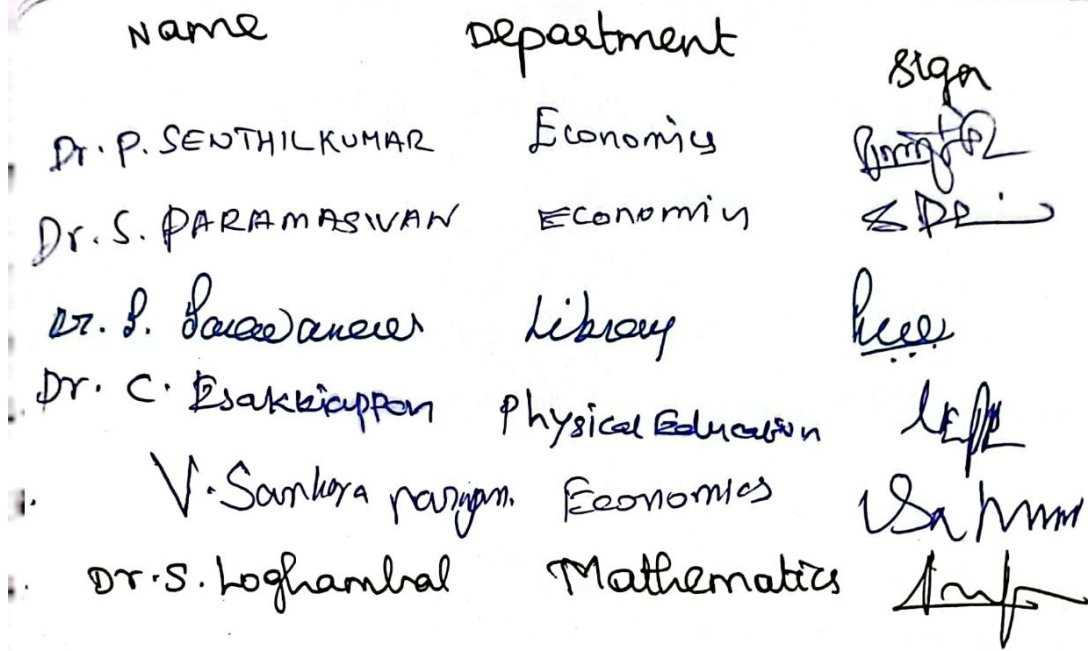 Name Department Sign
Dr. P. SENTHILKUMAR Economics
Dr. S. PARAMASIVAN Economics
Dr. S. Saravanan Library
Dr. C. Esakkiappan Physical Education
V. Sankara Economics
Dr. S. Loghambal Mathematics